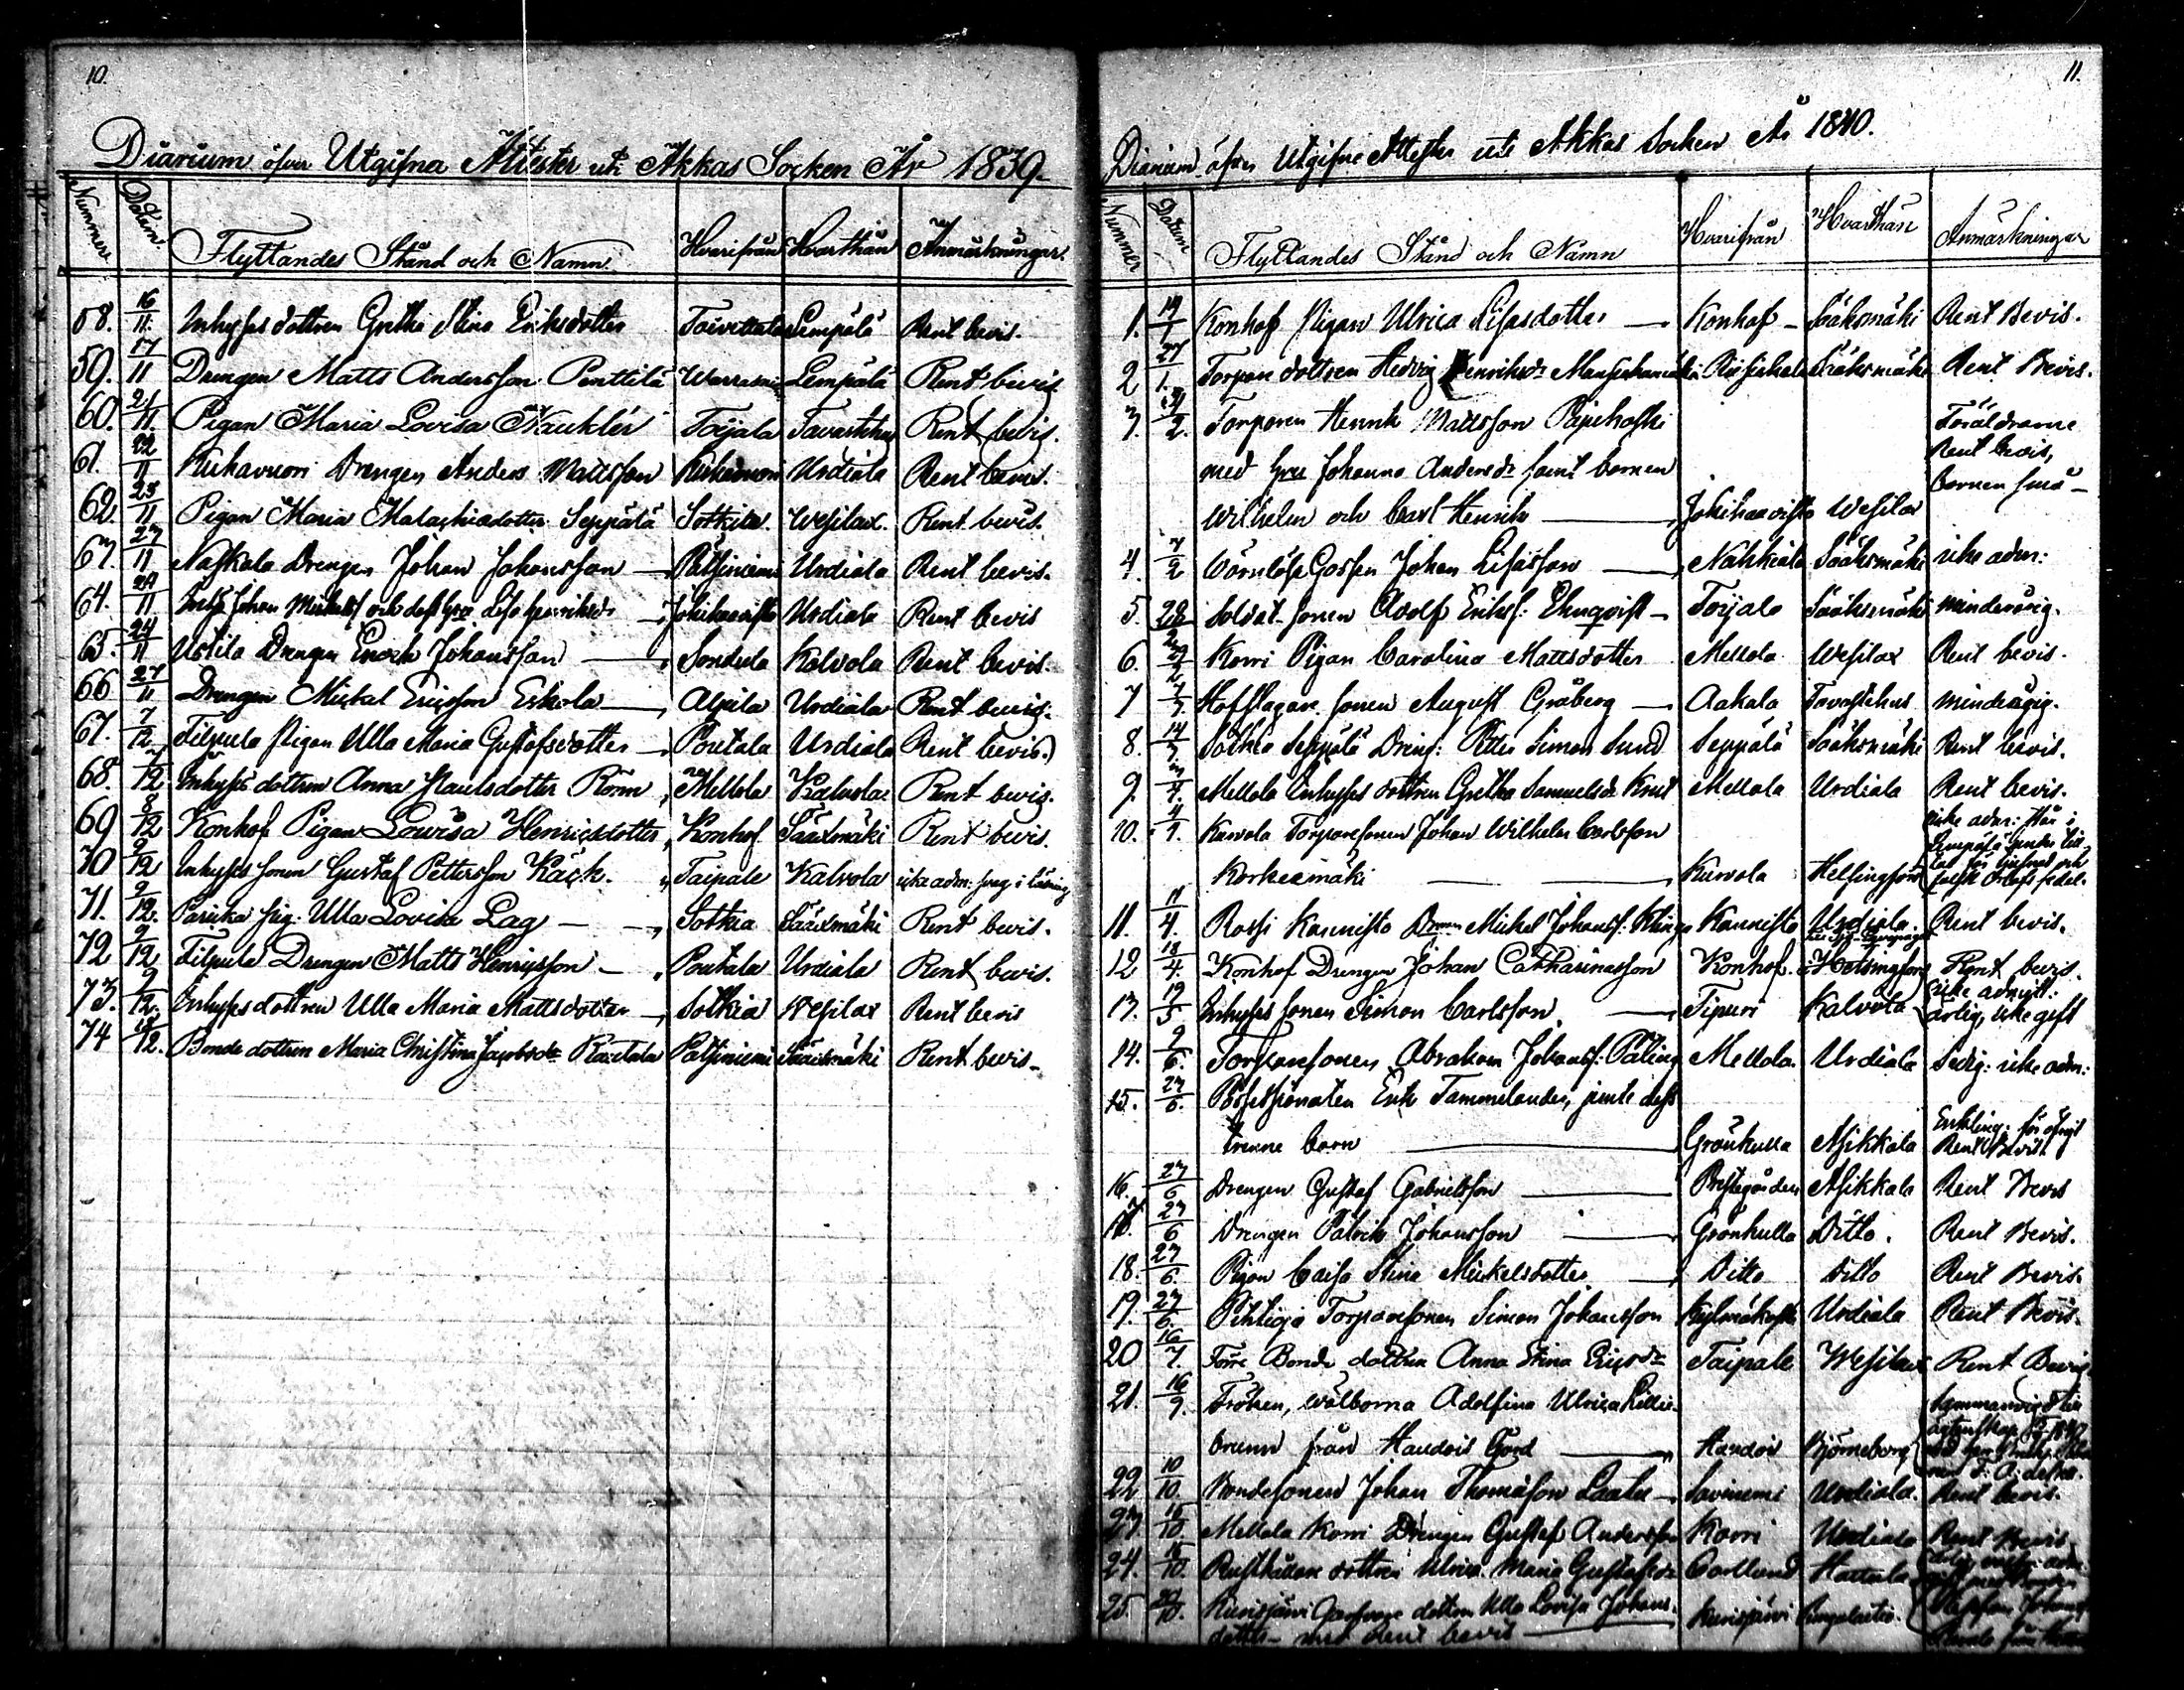 10.
Diarium öfver Utgifna Attester uti Akkas Socken År 1839.
Nummer Datum Flyttandes Stånd och Namn Hvarifrån Hvarthän Anmärkningar.
58. 16/11. Inhyses dottren Gretha Stina Eriksdotter Toivettula Lempälä Rent bevis.
59. 17/11 Drengen Matts Andersson Penttilä Lempälä Rent bevis
60. 21/11. Pigan Maria Lovisa Nauklér Toijala Tavastehus Rent bevis.
61. 22/11 Kirkavuori Drengen Anders Mattsson Kirkavuori Urdiala Rent bevis.
62. 23/11 Pigan Maria Malachiadotter Seppälä Sotkia Wesilax. Rent bevis.
63. 23/11 Naskala Drengen Johan Johansson Pätsiniemi Urdiala Rent bevis.
64. 24/11. Inhys Johan Mickelss och dess hru Lisa Henriksdr Jokihaavisto Urdiala Rent bevis
65. 24/11 Ustila Drengen Enock Johansson Sondula Kalvola Rent bevis.
66 27/11 Drengen Mickel Ericsson Eskola Urdiala Rent bevis.
67. 7/12 Tilpula Pigan Ulla Maria Gustofsdotter Poutala Urdiala Rent bevis.
68. 7/12 Inhyses dottren Anna Paulsdotter Röm Mellola Kalvola Rent bevis.
69 8/12 Konhof Pigan Lowisa Henricsdotter Konhof Sääxmäki Rent bevis.
70 9/12 Inhyses sonen Gustaf Pettersson Käck. Taipale Kalvola icke adm: svag i läsning
71. 9/12. Parikka pig: Ulla Lovisa Lag Sotkia Sääxmäki Rent bevis.
72 9/12 Tilpula Drengen Matts Henricsson Poutala Urdiala Rent bevis.
73. 9/12. Inhyses dottren Ulla Maria Mattsdotter Sotkia Wesilax Rent bevis
74 18/12. Bonde dottren Maria Christina Jacobsdr Rautala Pätsiniemi Sääxmäki Rent bevis
11.
Diarium öfver Utgifne Attester uti Akkas Socken År 1840.
Nummer Datum Flyttandes Stånd och Namn Hvarifrån Hvarthän Anmärkningar
1. 14/1 Konhof Pigan Ulrica Lisasdotter Konhof Sääksmäki Rent Bevis.
2 27/1. Torpare dottren Hedvig Henriksdr Sääksmäki Rent Bevis.
3. 2. Torparen Henrik Mattsson Föräldrarne
Rent bevis,
med hru Johanna Andersdr samt barnen barnen små
Wilhelm och Carl Henrik Jokihaavisto Wesilax
4. 7/2 Wärnlösa Gossen Johan Lisasson Nahkiala Sääksmäki icke adm:
5. 28 Soldat sonen Adolf Eriks: Ehnqvist Toijala Sääksmäki minderårig.
6. Korri Pigan Carolina Mattsdotter Mellola Wesilax Rent bevis.
7 7/3 Hofslagare sonen August Gråberg Aakala Tavastehus minderårig.
8. 14/3 Sotkia Seppälä Dreng: Petter Simon Sund Seppälä Sääksmäki Rent bevis.
9. 3/4. Mellola Inhyses dottren Gretha Samuelsdr Knut Mellola Urdiala Rent bevis.
10. Kurvola Torparesonen Johan Wilhelm Carlsson icke adm: står i
Lempälä
Korkeemäki Kurvola Helsingfors
11. 11/4. Rossi Kannisto Drengen Mickel Johanss: Kling Kannisto Urdiala. Rent bevis.
12 18/4. Konhof Drengen Johan Catharinasson Konhof. Helsingfors Rent bevis.
13. 19/5 Inhyses sonen Simon Carlsson Tipuri Kalvola
ärlig, icke gift
14. 9/6. Torparesonen Abraham Johanss: Päling Mellola Urdiala Ledig: icke adm:
15. 27/6. Possessionaten Erik Tammelander, jemte dess
trenne barn Grönkulla Asikkala Enkling. för öfrigt
Rent Bevis.
16. 27/6 Drengen Gustaf Gabrielsson Prestgården Asikkala Rent Bevis
17. 27/6 Drengen Patrick Johansson Grönkulla Ditto. Rent Bevis.
18. 27/6. Pigan Caisa Stina Mickelsdotter Ditto Ditto Rent Bevis
19. 27/6. Torparesonen Simon Johansson Kylmäkoski Urdiala Rent Bevis.
20 16/7. Förre Bonde dottren Anna Stina Ericsdr Taipale Wesilax Rent Bevis.
21. 16/9. Fröken, wälborna Adolfina Ulrica Lillie-
brunn från Haudois Gård Haudois Björneborg
22 10/10. Bondesonen Johan Thomasson Laalu Savinemi Urdiala. Rent bevis.
23 15/10 Mellola Korri Drengen Gustaf Andersson Korri Urdiala Rent Bevis
24. 15/10. Rusthållare dottren Ulrica Maria Gustafsdr Carllund Hattula
25. Kurisjärvi dottren Ulla Lovisa Johans- Kurisjärvi
dotter med Rent bevis